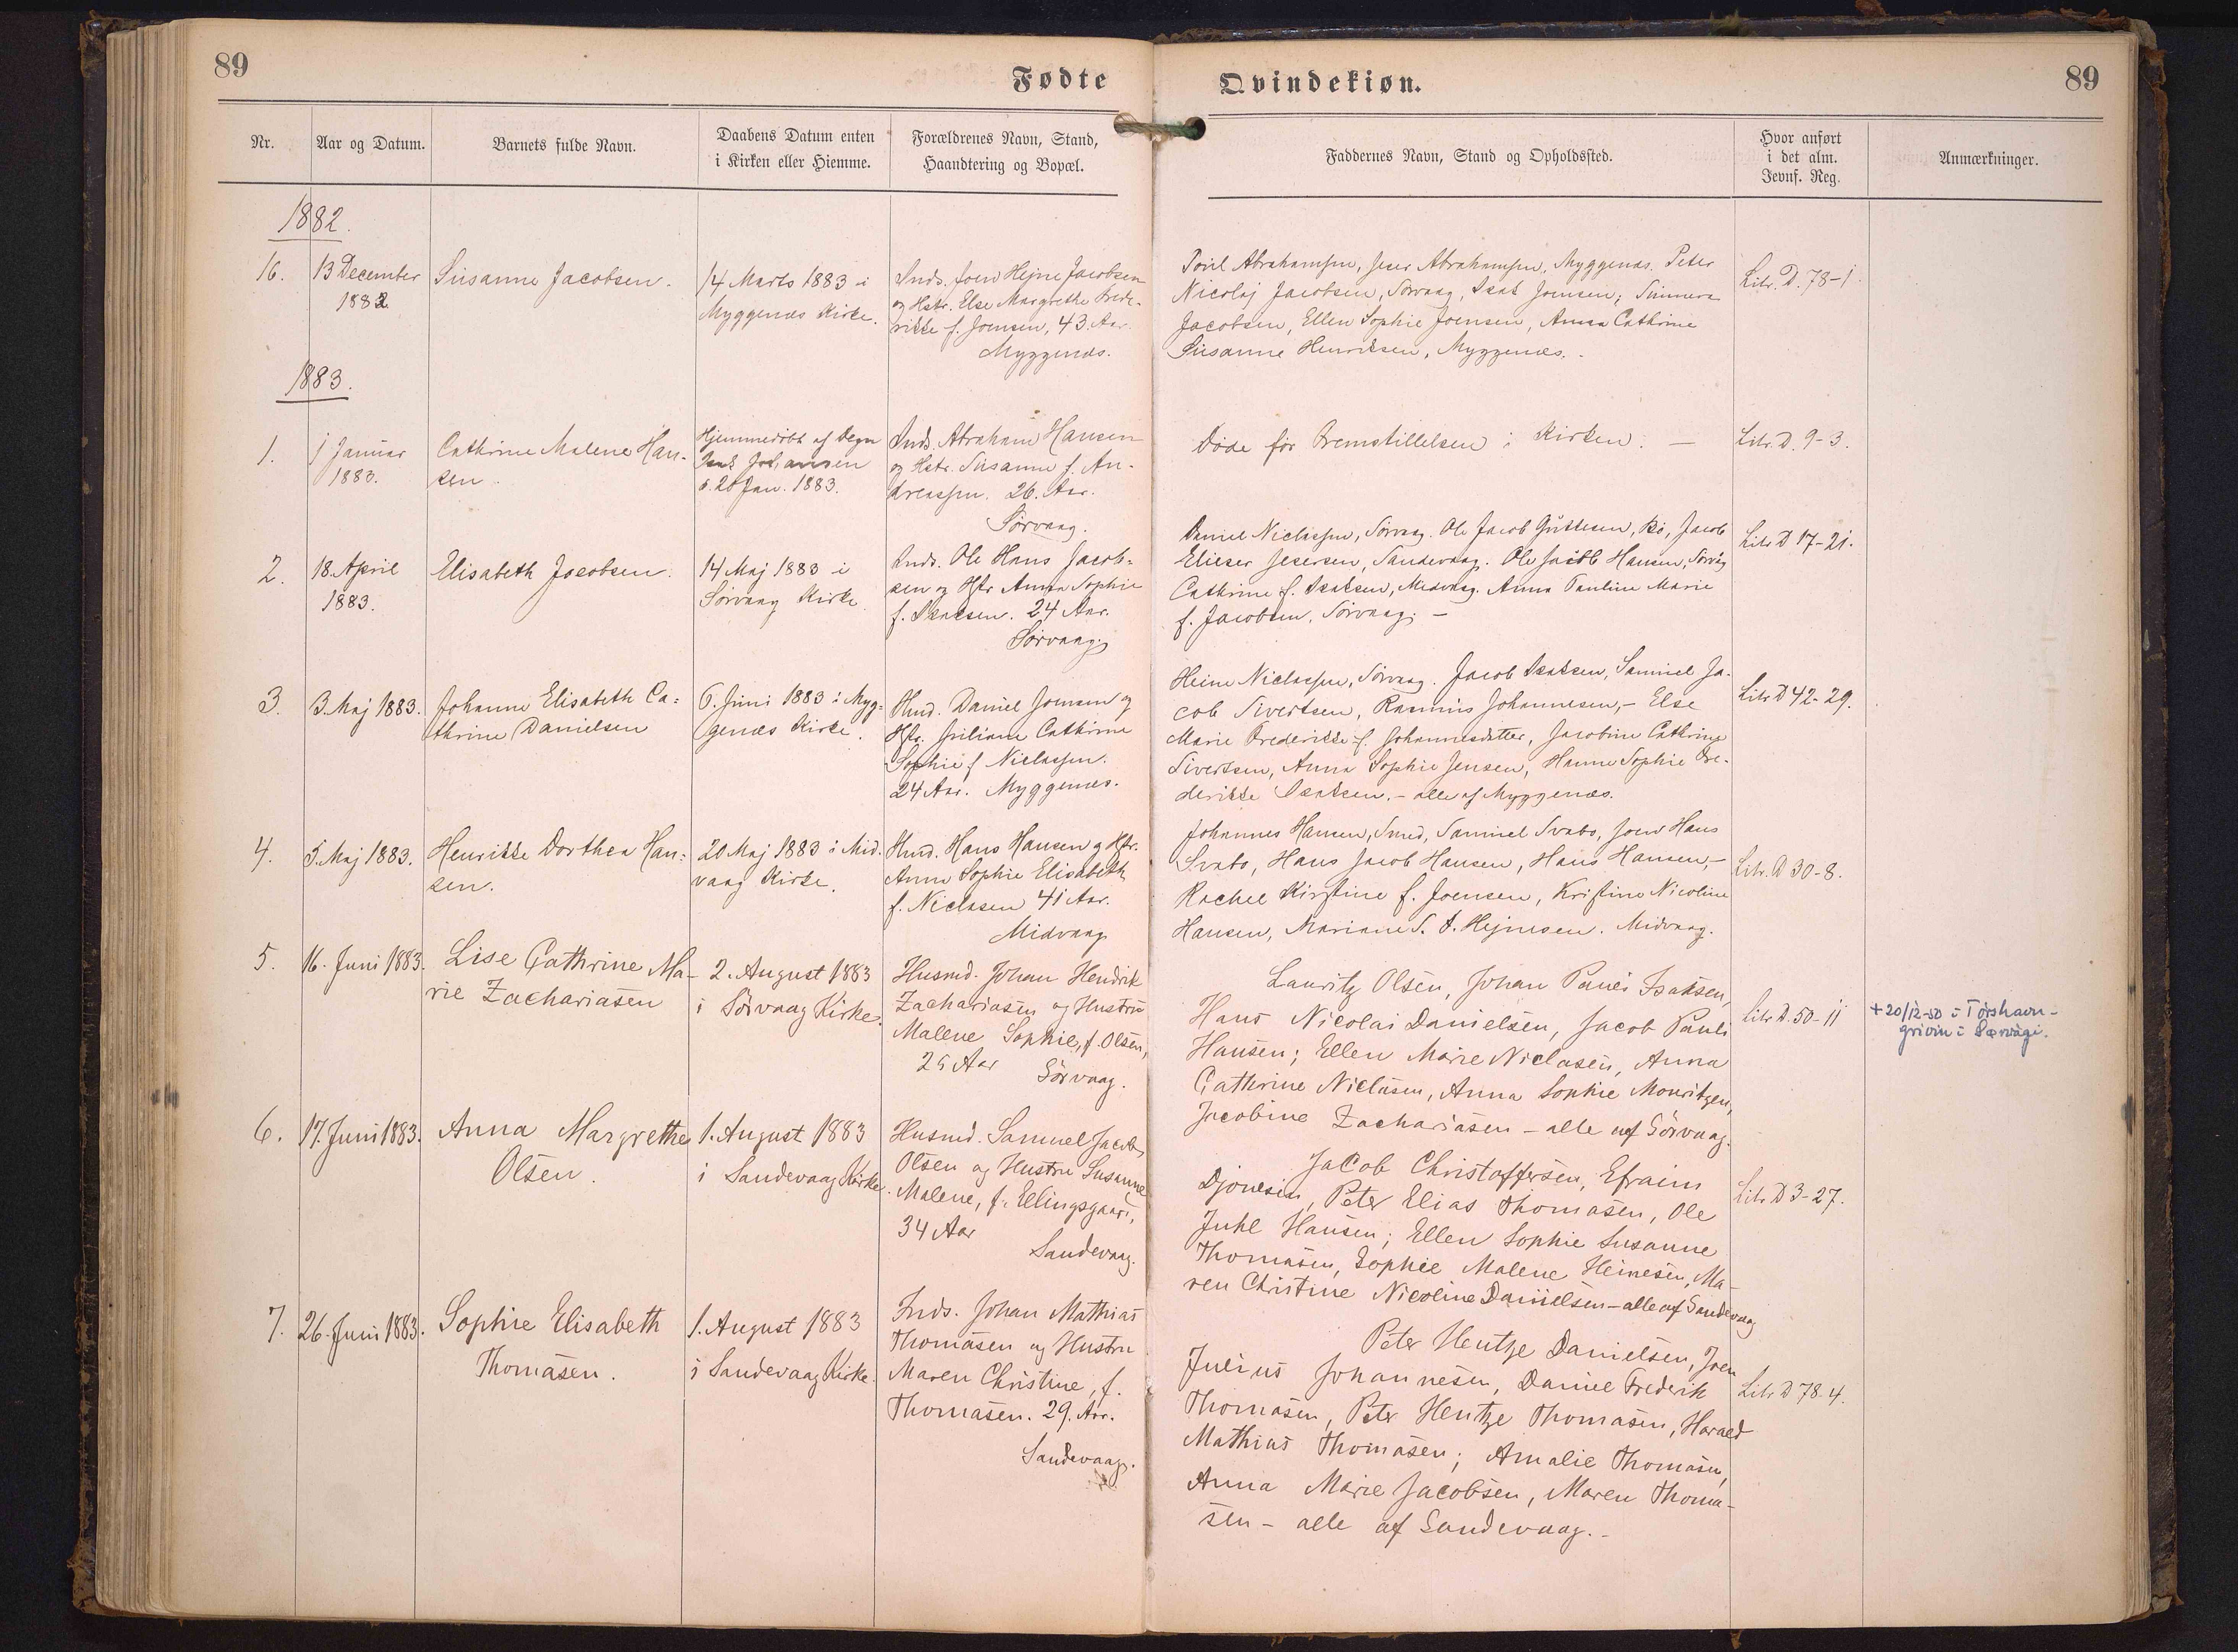 89
Fødte
Nr.
Aar og Datum.
Barnets fulde Navn.
Daabens Datum enten
i Kirken eller Hiemme.
Forældrenes Navn, Stand,
Haandtering og Bopæl.
1882.
16.
13 December
1882
Susanne Jacobsen.
14 Marts 1883 i
Myggenæs Kirke.
Inds. Joen Hejne Jacobsen
og Hstr. Else Margrethe Frede-
rikke f. Joensen, 43 Aar.
Myggenæs.
1883.
1.
1 Januar
1883.
Cathrine Malene Han-
sen.
Hjemmedöbt af Degn
Isak Johansen
d. 20 Jan. 1883.
Inds. Abraham Hansen
og Hstr. Susanne f. An-
dreassen. 26. Aar.
Sörvaag.
2.
18. April
1883.
Elisabeth Jacobsen.
14 Maj 1883 i
Sörvaag Kirke.
Inds. Ole Hans Jacob-
sen og Hstr Anna Sophie
f. Isaksen. 24 Aar.
Sörvaag.
3.
3. Maj 1883.
Johanne Elisabeth Ca-
thrine Danielsen
6. Juni 1883 i Myg-
genæs Kirke.
Husd. Daniel Joensen og
Hstr. Juliane Cathrine
Sophie f. Niclassen.
24 Aar. Myggenæs.
4.
5. Maj 1883.
Henrikke Dorthea Han-
sen.
20 Maj 1883 i Mid-
vaag Kirke.
Husd. Hans Hansen og Hstr.
Anne Sophie Elisabeth
f. Niclasen 41 Aar.
Midvaag
5.
16. Juni 1883.
Lise Cathrine Ma-
rie Zachariasen
2. August 1883
i Sörvaag Kirke.
Husmd. Johan Hendrik
Zachariasen og Hustru
Malene Sophie, f. Olsen,
25 Aar
Sörvaag.
6.
17. Juni 1883.
Anna Margrethe
Olsen.
1. August 1883
i Sandevaag Kirke.
Husmd. Samuel Jacob
Olsen og Hustru Susanne
Malene, f. Ellingsgaard,
34 Aar
Sandevaag.
7.
26. Juni 1883.
Sophie Elisabeth
Thomasen.
1. August 1883
i Sandevaag Kirke.
Inds. Johan Mathias
Thomasen og Hustru
Maren Christine, f.
Thomasen. 29. Aar.
Sandevaag.
Qvindekiøn.
89
Faddernes Navn, Stand og Opholdssted.
Hvor anført
i det alm.
Jevnf. Reg.
Anmærkninger.
Abrahamsen, Abrahamsen, Myggenæs. Peter
Nicolaj Jacobsen, Sörvaag, Isak Joensen; Sunneva
Jacobsen, Ellen Sophie Joensen, Anna Cathrine
Susanne Henriksen, Myggenæs.
Litr. D. 78-1.
Döde för Fremstillelsen i Kirken. —
Litr. D. 9-3.
Daniel Niclassen, Sörvaag. Ole Jacob Guttesen, Bö, Jacob
Elieser Jesersen, Sandevaag. Ole Jacob Hansen, Sörvåg
Cathrine f. Isaksen, Midvaag. Anna Pauline Marie
f. Jacobsen, Sörvaag. —
Litr D 17-21.
Heine Niclassen, Sörvaag. Jacob Isaksen, Samuel Ja-
cob Sivertsen, Rasmus Johannesen, - Else
Marie Frederikke f. Johannesdatter, Jacobine Cathrine
Sivertsen, Anna Sophie Jensen, Hanne Sophie Fre-
derikke Isaksen. - alle af Myggenæs.
Litr D 42-29.
Johannes Hansen, Smed, Samuel Svabo, Joen Hans
Svabo, Hans Jacob Hansen, Hans Hansen, -
Rachel Kirstine f. Joensen, Kristine Nicoline
Hansen, Mariane S. D. Hejnesen. Midvaag.
Litr. D 30-8.
Lauritz Olsen, Johan Pauli Isaksen,
Hans Nicolai Danielsen, Jacob Pauli
Hansen; Ellen Marie Niclasen, Anna
Cathrine Niclasen, Anna Sophie Mouritzen,
Jacobine Zachariasen - alle af Sörvaag.
Litr D. 50-11
+ 20/12-50 í Tórshavn-
grivin í Sørvági.
Jacob Christoffersen, Efraim
Djonesen, Peter Elias Thomasen, Ole
Juhl Hansen; Ellen Sophie Susanne
Thomasen, Sophie Malene Heinesen, Ma-
ren Christine Nicoline Danielsen - alle af Sandevaag
Litr D 3-27.
Peter Hentze Danielsen, Joen
Julius Johannesen, Daniel Frederik
Thomasen, Peter Hentze Thomasen, Harald
Mathias Thomasen; Amalie Thomasen,
Anna Marie Jacobsen, Maren Thoma-
sen - alle af Sandevaag. -
Litr D 78-4.